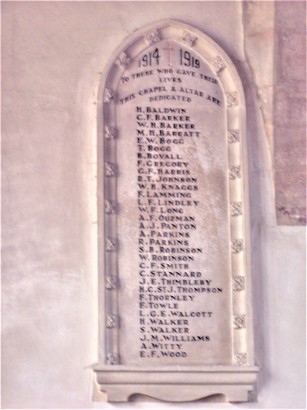 1914 1919
TO THOSE WHO GAVE THEIR
LIVES
THIS CHAPEL & ALTAR ARE
DEDICATED
H. BALDWIN
C. F. BARKER
W. H. BARKER
M. H. BARRATT
E. W. BOGG
T. BOGG
B. BOVALL
F. GREGORY
G. F. HARRIS
R. T. JOHNSON
W. H. KNAGGS
F. LAMMING
L. F. LINDLEY
W. F. LONG
A. F. OUZMAN
A. J. PANTON
A. PARKINS
R. PARKINS
S. B. ROBINSON
W. ROBINSON
C. F. SMITH
C. STANNARD
J. E. THIMBLEBY
H. C. ST. J. THOMPSON
F. THORNLEY
F. TOWLE
L. G. E. WALCOTT
H. WALKER
S. WALKER
J. M. WILLIAMS
A. WITTY
E. F. WOOD